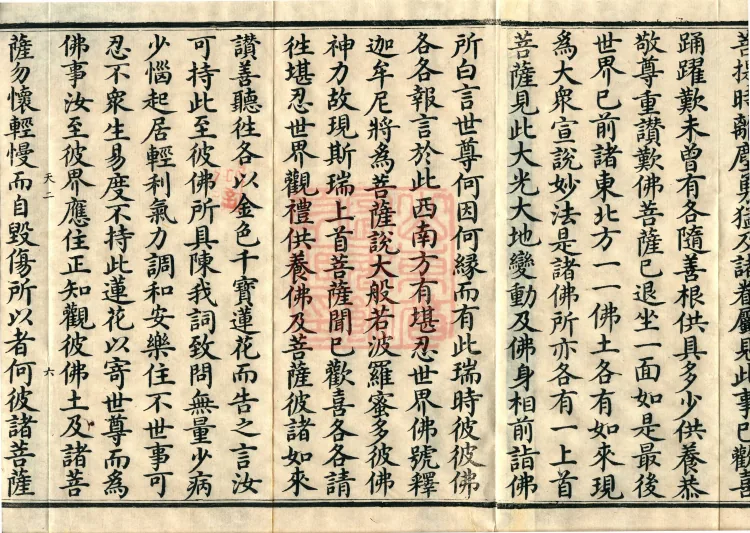 菩提時離塵勇猛及諸眷屬見此事已歡喜
踊躍歎未曾有各隨善根供具多少供養恭
敬尊重讚歎佛菩薩已退坐一面如是最後
世界已前諸東北方一一佛土各有如來現
爲大衆宣說妙法是諸佛所亦各有一上首
菩薩見此大光大地變動及佛身相前詣佛
所白言世尊何因何緣而有此瑞時彼彼佛
各各報言於此西南方有堪忍世界佛號釋
迦牟尼將爲菩薩說大般若波羅蜜多彼佛
神力故現斯瑞上首菩薩聞已歡喜各各請
往堪忍世界觀禮供養佛及菩薩彼諸如來
讚善聽往各以金色千寶蓮花而告之言汝
可持此至彼佛所具陳我詞致問無量少病
少惱起居輕利氣力調和安樂住不世事可
忍不衆生易度不持此蓮花以寄世尊而爲
佛事汝至彼界應住正知觀彼佛土及諸菩
天二 六
薩勿懷輕慢而自毀傷所以者何彼諸菩薩